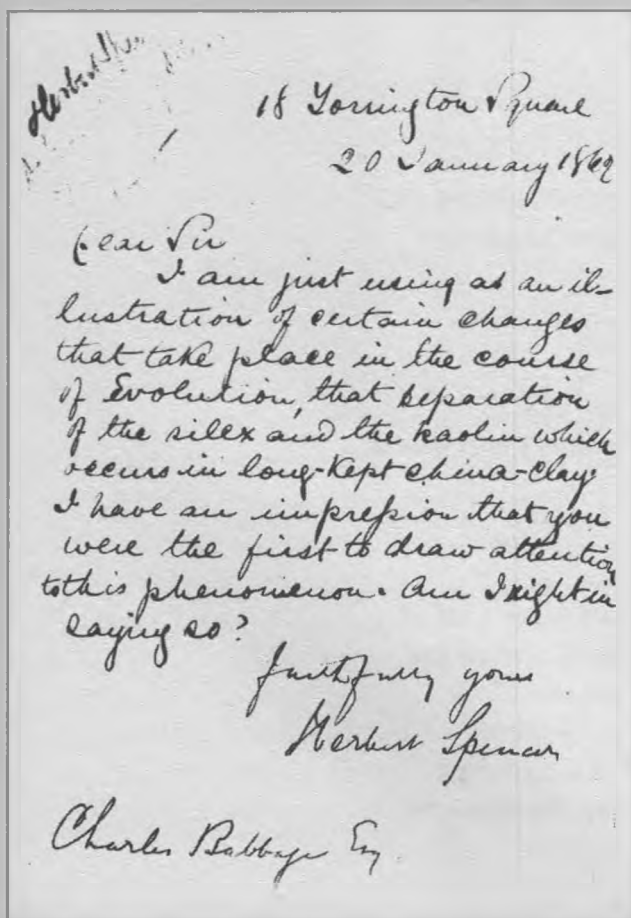 Herbert Spe
18 Torrington Square
20 January 1862
Dear Sir
I am just using as an il-
lustration of certain changes
that take place in the course
of Evolution, that separation
of the silex and the kaolin which
occurs in long-kept china-clay.
I have an impression that you
were the first to draw attention
to this phenomenon. Am I right in
saying so?
faithfully yours
Herbert Spencer
Charles Babbage Esq